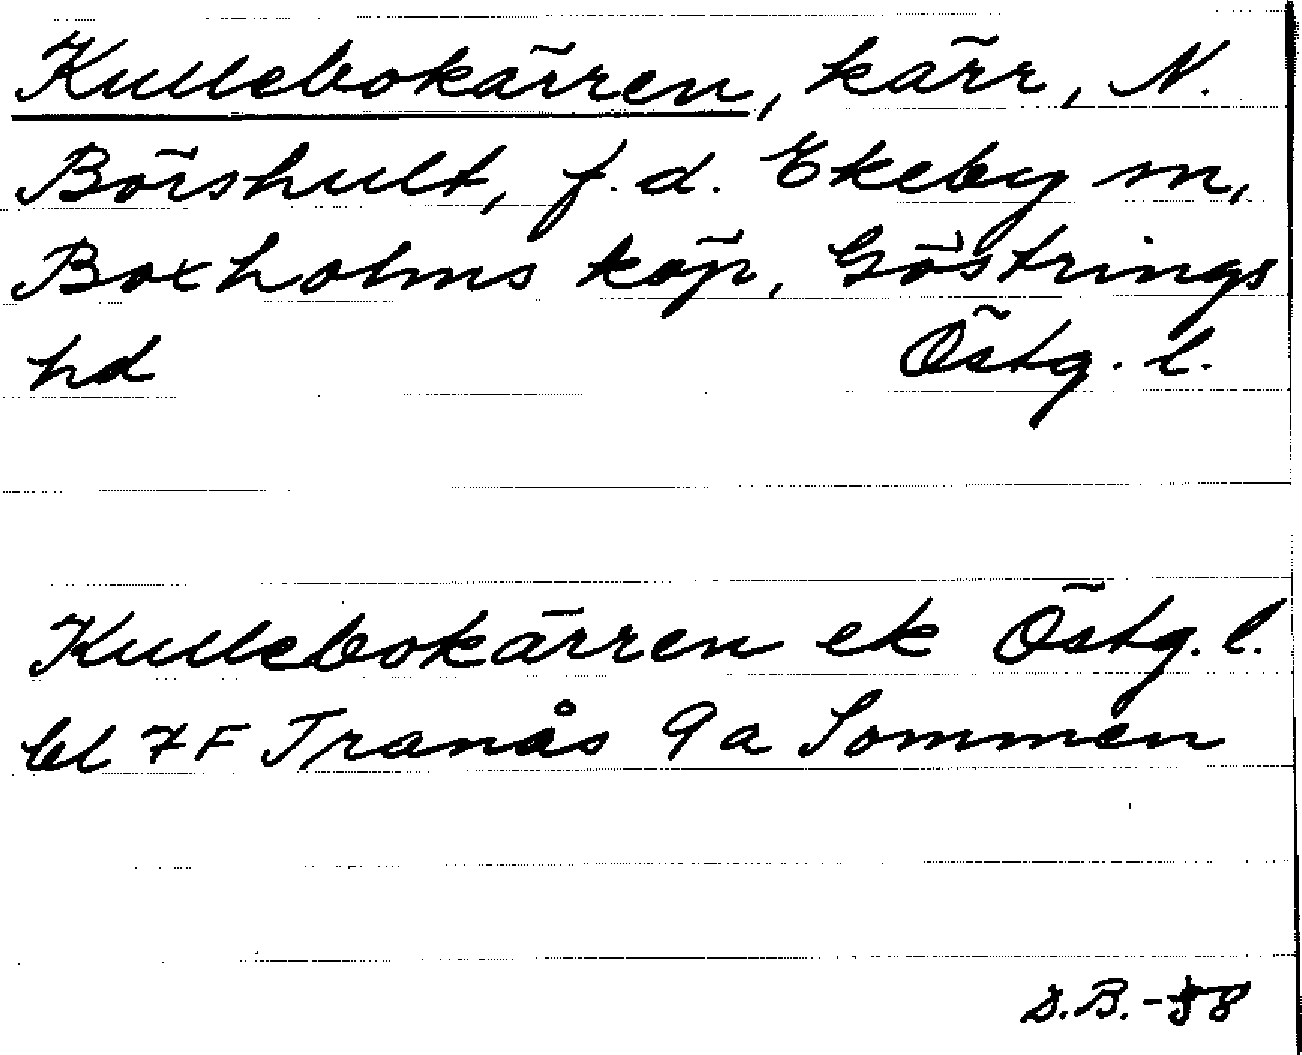 Kullebokärren, kärr, N.
Börshult, f.d. Ekeby sn,
Boxholms köp, Göstrings
hd Östg. l.
Kullebokärren ek Östg. l.
bl 7F Tranås 9a Sommen
D.B. -58